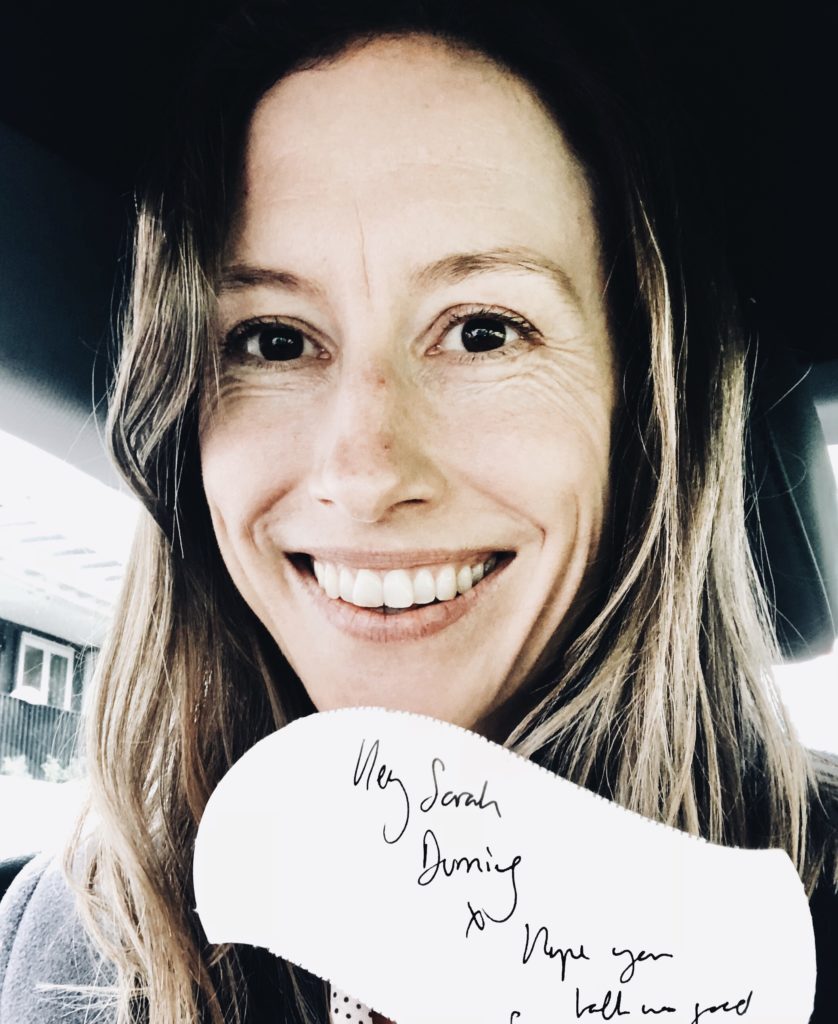 Hey Sarah
Durning
x
Hope your
talk was good